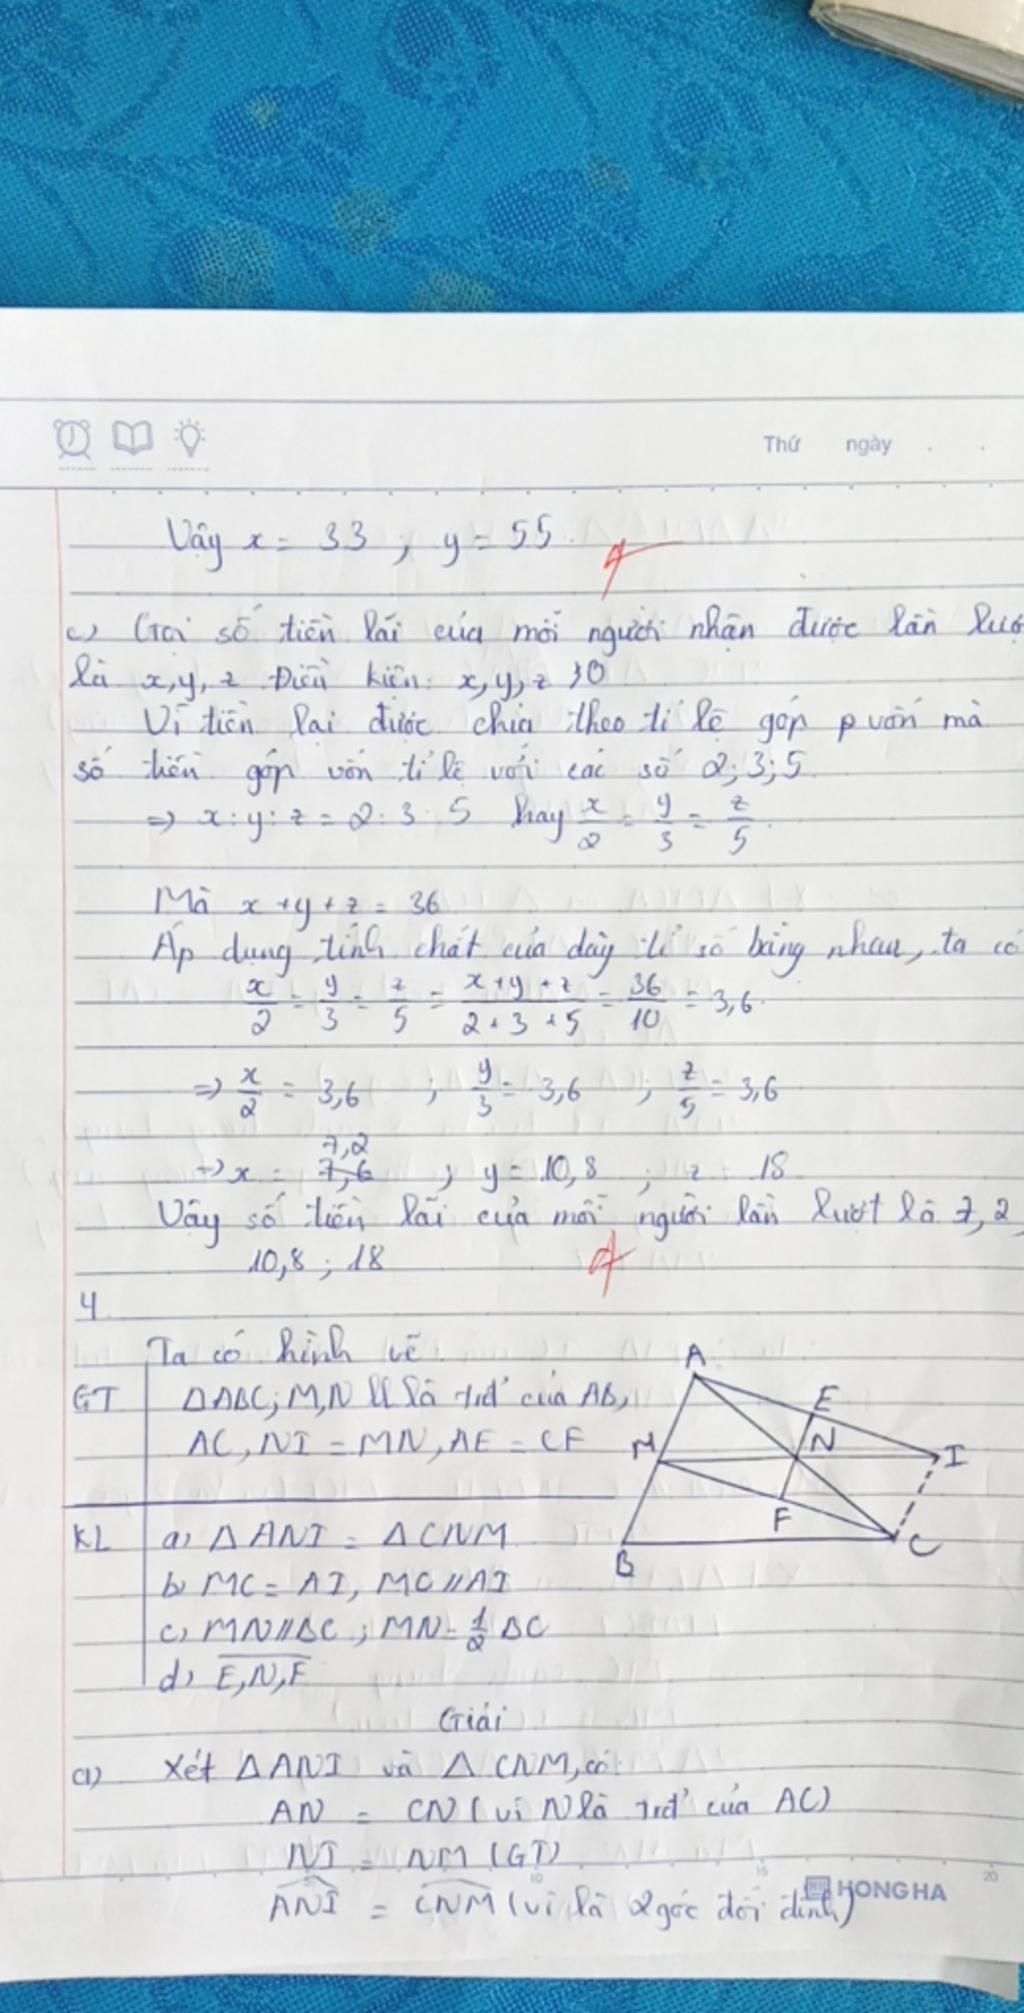 Thứ ngày
Vậy x = 33 ; y = 55.
c) Gọi số tiền lãi của mỗi người nhận được lần lượ
là x, y, z. Điều kiện: x, y, z > 0
Vì tiền lại được chia theo tỉ lệ góp p vốn mà
số tiền góp vốn tỉ lệ với các số 2; 3; 5.
=> x : y : z = 2 : 3 : 5 hay x/2 = y/3 = z/5.
Mà x + y + z = 36
Áp dụng tính chất của dãy tỉ số bằng nhau, ta có
x/2 = y/3 = z/5 = x + y + z/2 + 3 + 5 = 36/10 = 3,6.
=> x/2 = 3,6 ; y/3 = 3,6 ; z/5 = 3,6
7,2
=> x = 7,6 ; y = 10,8 ; z = 18
Vậy số tiền lãi của mỗi người lần lượt là 7,2;
10,8 ; 18
4.
Ta có hình vẽ
GT ΔABC; M, N là trđ của AB,
AC, NI = MN, AE = CF
A
E
M N I
F
B C
KL a) ΔANI = ΔCNM
b) MC = AI, MC // AI
c) MN // BC ; MN = 1/2 BC
d) E, N, F
Giải
a) Xét ΔANI và ΔCNM, có:
AN = CN (vì N là trđ của AC)
NI = NM (GT)
ANI = CNM (vì là 2 góc đối đỉnh)
10 15 20
HONG HA